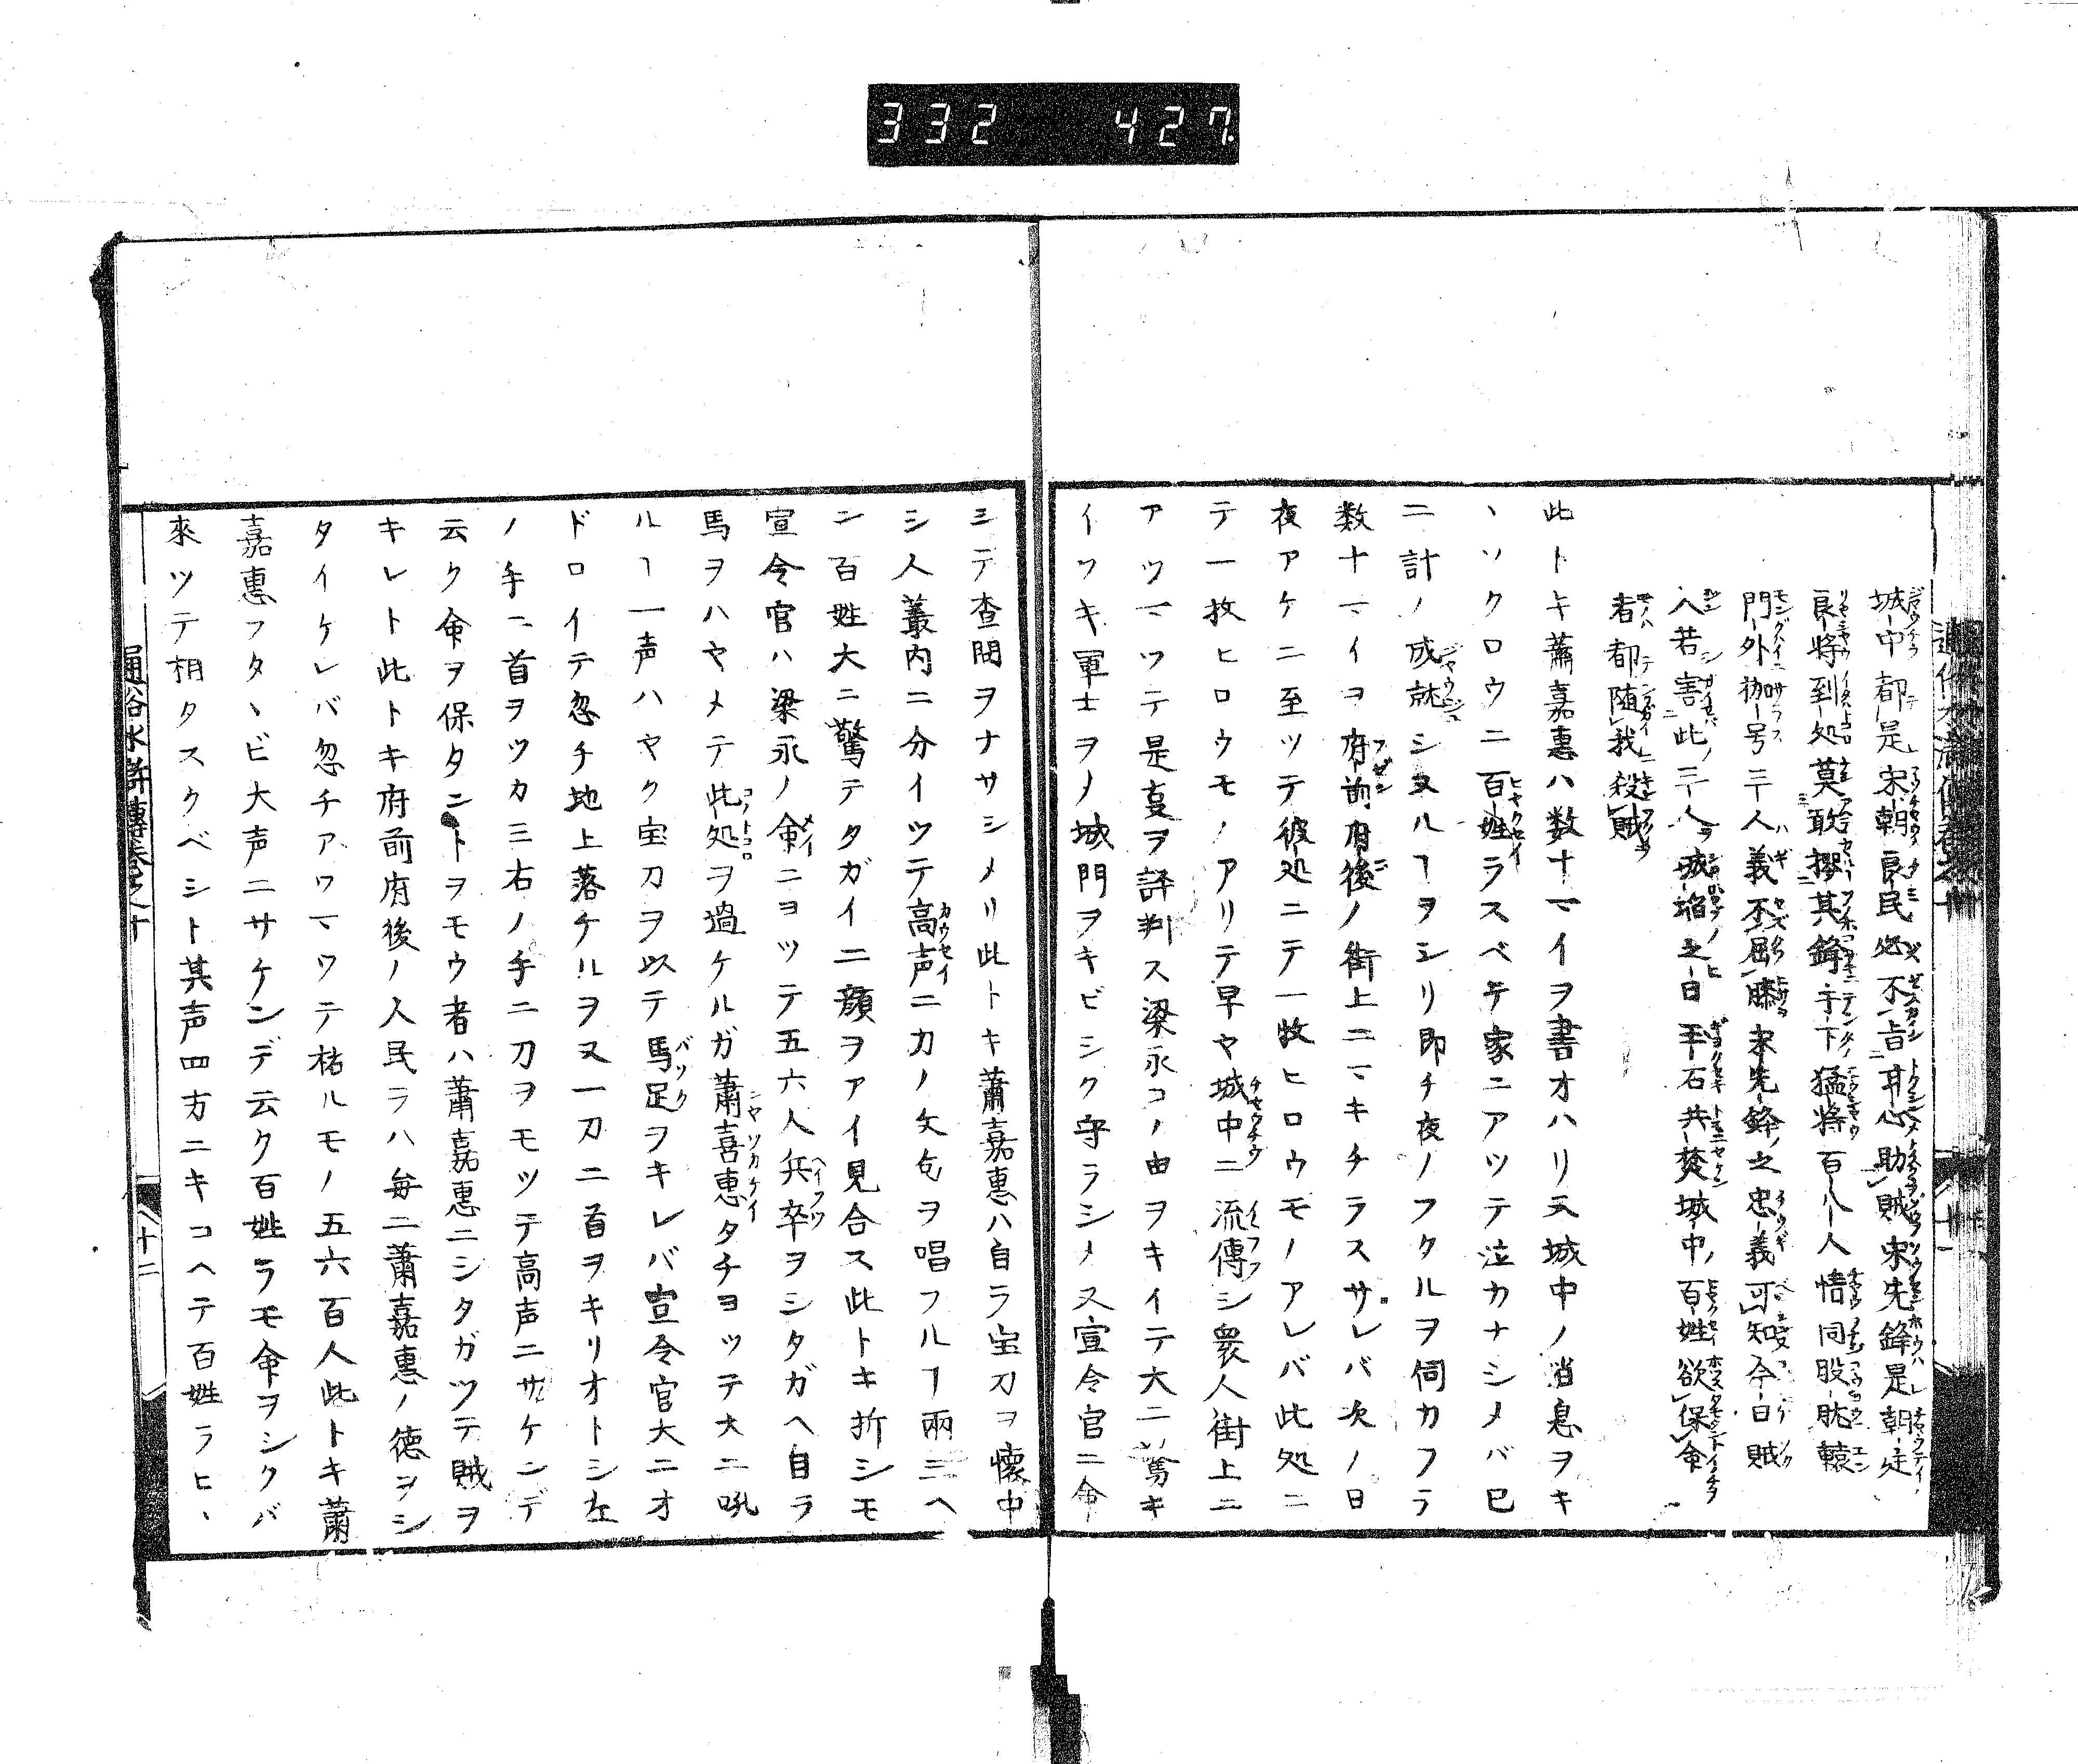 332 427
城中都是宋朝良民必不旨甘心助賊宋先鋒是朝廷
良將到処莫敢攖其鋒手下猛將百八人情同股肱轅
門外枷号三人義不屈膝宋先鋒之忠義可知今日賊
人若害此三人城陷之日玉石共焚城中百姓欲保命
者都随我殺賊
此トキ蕭嘉惠ハ数十マイヲ書オハリ天城中ノ消息ヲキ
ヽソクロウニ百姓ラスベテ家ニアツテ泣カナシメバ已
ニ計ノ成就シヌルヿヲシリ即チ夜ノフクルヲ伺カフラ
数十マイヲ府前府後ノ街上ニマキチラスサレバ次ノ日
夜アケニ至ツテ彼処ニテ一枚ヒロウモノアレバ此処ニ
テ一枚ヒロウモノアリテ早ヤ城中ニ流傳シ衆人街上ニ
アツマツテ是叓ヲ評判ス梁永コノ由ヲキイテ大ニ驚キ
イソキ軍士ヲメ城門ヲキビシク守ラシメ又宣令官ニ命
ミテ查問ヲナサシメリ此トキ蕭嘉惠ハ自ラ宝刀ヲ懐中
シ人叢内ニ分イツテ高声ニカノ文句ヲ唱フルヿ兩三ヘ
ン百姓大ニ驚テタガイニ顔ヲアイ見合ス此トキ折シモ
宣令官ハ梁永ノ命ニヨツテ五六人兵卒ヲシタガヘ自ラ
馬ヲハヤメテ此処ヲ過ケルガ蕭喜惠タチヨツテ大ニ吼
ルヿ一声ハヤク宝刀ヲ以テ馬足ヲキレバ宣令官大ニオ
ドロイテ忽チ地上落ケルヲ又一刀ニ首ヲキリオトシ左
ノ手ニ首ヲツカミ右ノ手ニ刀ヲモツテ高声ニサケンデ
云ク命ヲ保タントヲモウ者ハ蕭嘉惠ニシタガツテ賊ヲ
キレト此トキ府前府後ノ人民ラハ毎ニ蕭嘉惠ノ徳ヲシ
タイケレバ忽チアツマツテ祐ルモノ五六百人此トキ蕭
嘉惠フタヽビ大声ニサケンデ云ク百姓ラモ命ヲシクバ
來ツテ相タスクベシト其声四方ニキコヘテ百姓ラヒヽ
通俗水滸傳卷之十
十二